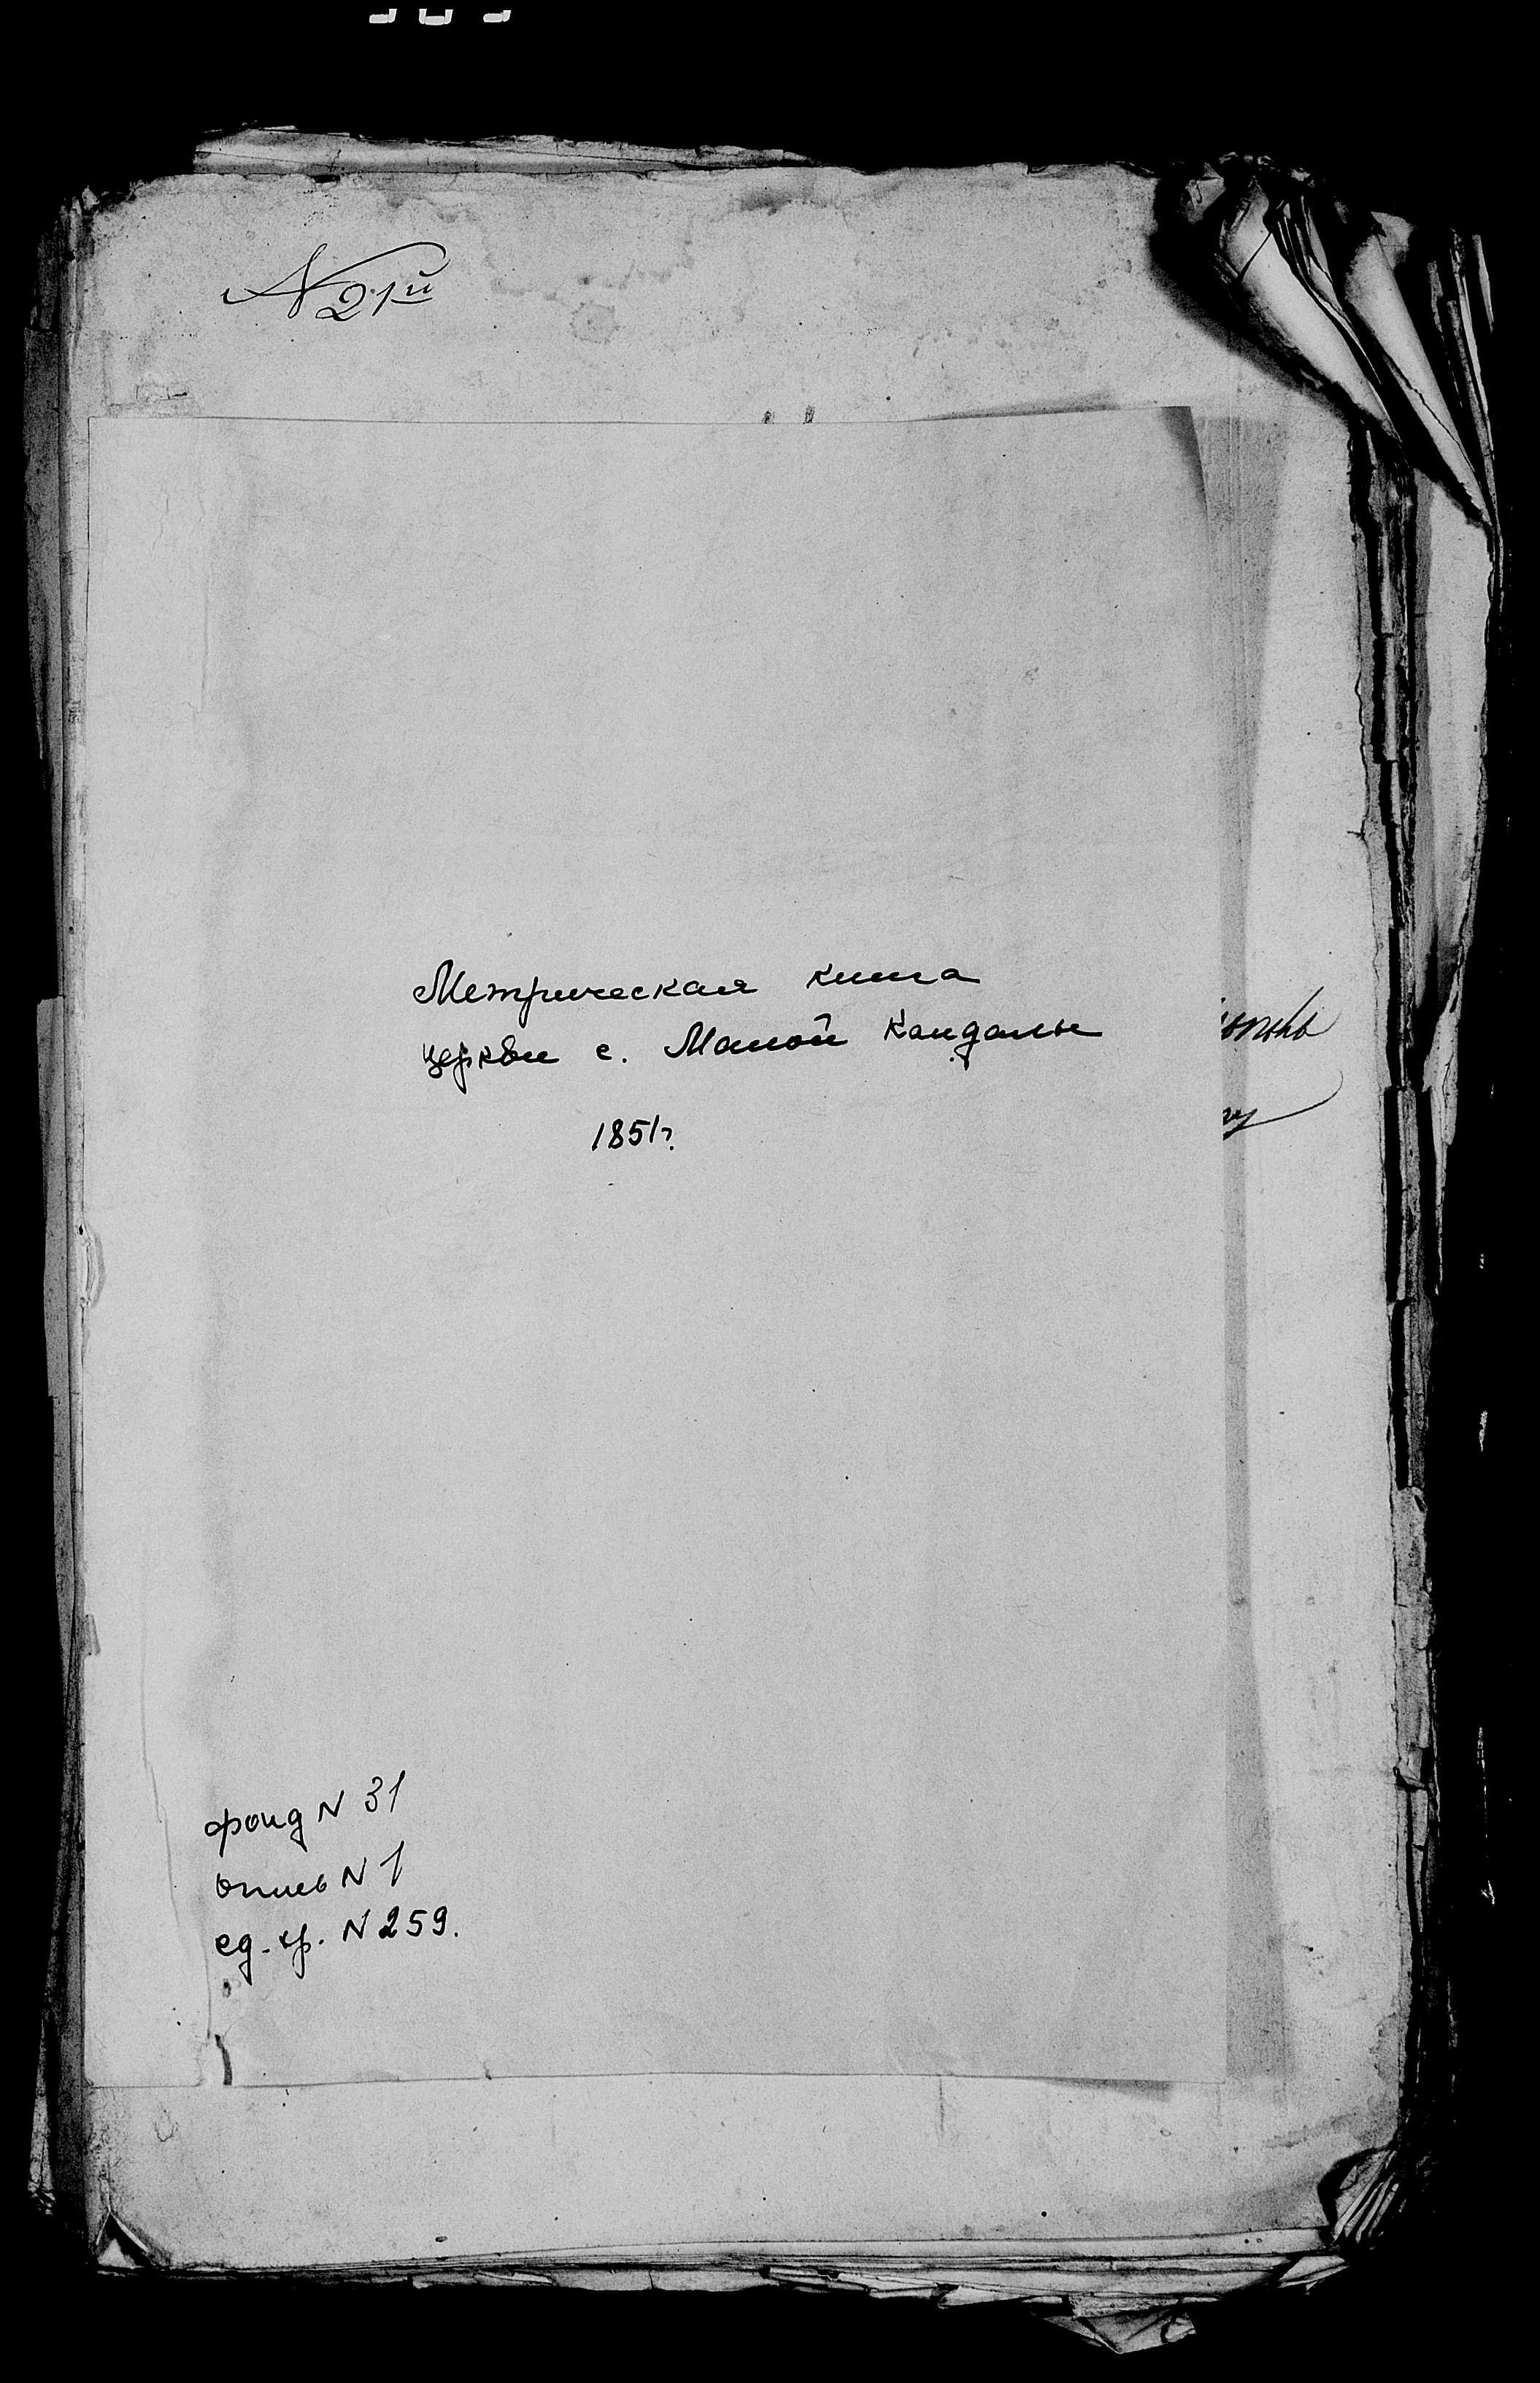 N 21й
Метрическая книга
церкви с. Малой Кандалы
1851г.
фонд N 31
опись N 1
ед. хр. N 259.